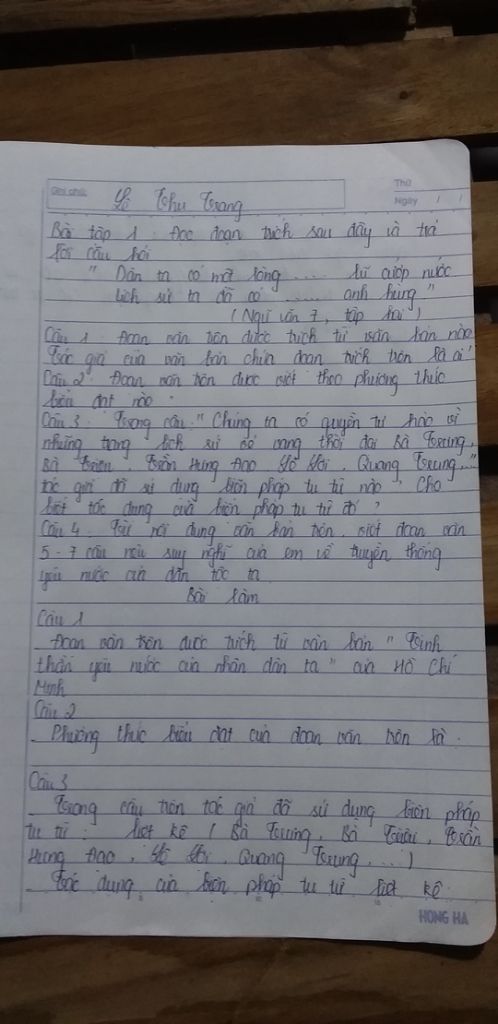 Ghi chú: Lê Thu Trang
Thứ
Ngày / /
Bài tập 1: Đọc đoạn trích sau đây và trả
lời câu hỏi
" Dân ta có một lòng ..... lũ cướp nước
Lịch sử ta đã có ..... anh hùng "
( Ngữ văn 7, tập hai )
Câu 1: Đoạn văn trên được trích từ văn bản nào
Tác giả của văn bản chứa đoạn trích trên là ai
Câu 2: Đoạn văn trên được viết theo phương thức
biểu đạt nào.
Câu 3: Trong câu: " Chúng ta có quyền tự hào vì
những trang lịch sử vẻ vang thời đại Bà Trưng,
Bà Triệu, Trần Hưng Đạo, Lê Lợi, Quang Trung..."
tác giả đã sử dụng biện pháp tu từ nào, Cho
biết tác dụng của biện pháp tu từ đó ?
Câu 4: Từ nội dung văn bản trên, viết đoạn văn
5-7 câu nêu suy nghĩ của em về truyền thống
yêu nước của dân tộc ta
Bài làm
Câu 1
- Đoạn văn trên được trích từ văn bản " Tinh
thần yêu nước của nhân dân ta " của Hồ Chí
Minh
Câu 2
- Phương thức biểu đạt của đoạn văn trên là:
Câu 3
- Trong câu trên tác giả đã sử dụng biện pháp
tu từ: liệt kê ( Bà Trưng, Bà Triệu, Trần
Hưng Đạo, Lê Lợi, Quang Trung, ... )
- Tác dụng của biện pháp tu từ liệt kê:
HONG HA